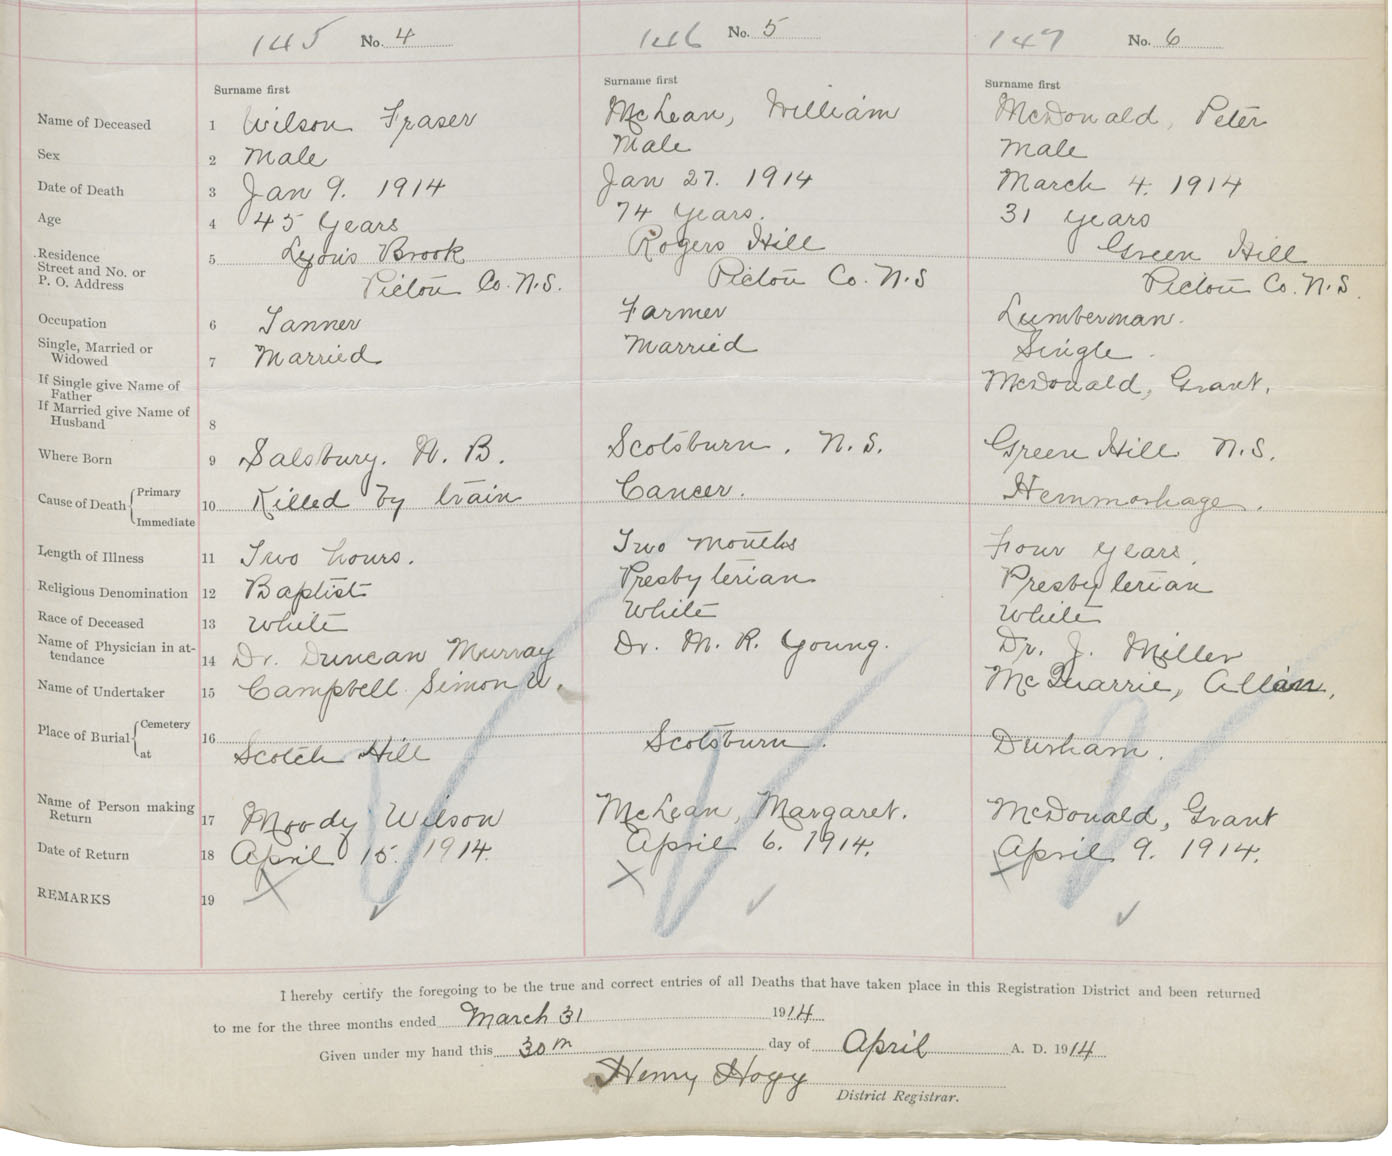 145 No. 4 146 No. 5 147 No. 6
Surname first Surname first Surname first
Name of Deceased 1 Wilson Fraser McLean, William McDonald, Peter
Sex 2 Male Male Male
Date of Death 3 Jan 9. 1914 Jan 27. 1914 March 4. 1914
Age 4 45 Years 74 years. 31 years
Residence Street and No. or P. O. Address 5 Lyons Brook Rogers Hill Green Hill
Pictou Co. N.S. Pictou Co. N.S Pictou Co. N.S.
Occupation 6 Tanner Farmer Lumberman.
Single, Married or Widowed 7 Married Married Single.
If Single give Name of Father McDonald, Grant.
If Married give Name of Husband 8
Where Born 9 Salsbury. N. B. Scotsburn. N.S. Green Hill N.S.
Cause of Death Primary Immediate 10 Killed by train Cancer. Hemmorhage.
Length of Illness 11 Two hours. Two months Four years.
Religious Denomination 12 Baptist Presbyterian Presbyterian
Race of Deceased 13 White White White
Name of Physician in attendance 14 Dr. Duncan Murray Dr. M. R. Young. Dr. J. Miller
Name of Undertaker 15 Campbell Simon W. McQuarrie, Allan,
Place of Burial Cemetery at 16 Scotch Hill Scotsburn. Durham.
Name of Person making Return 17 Moody Wilson McLean, Margaret. McDonald, Grant
Date of Return 18 April 15. 1914. April 6. 1914. April 9. 1914.
REMARKS 19
I hereby certify the foregoing to be the true and correct entries of all Deaths that have taken place in this Registration District and been returned
to me for the three months ended March 31 1914
Given under my hand this 30th day of April A. D. 1914
Henry Hogg
District Registrar.